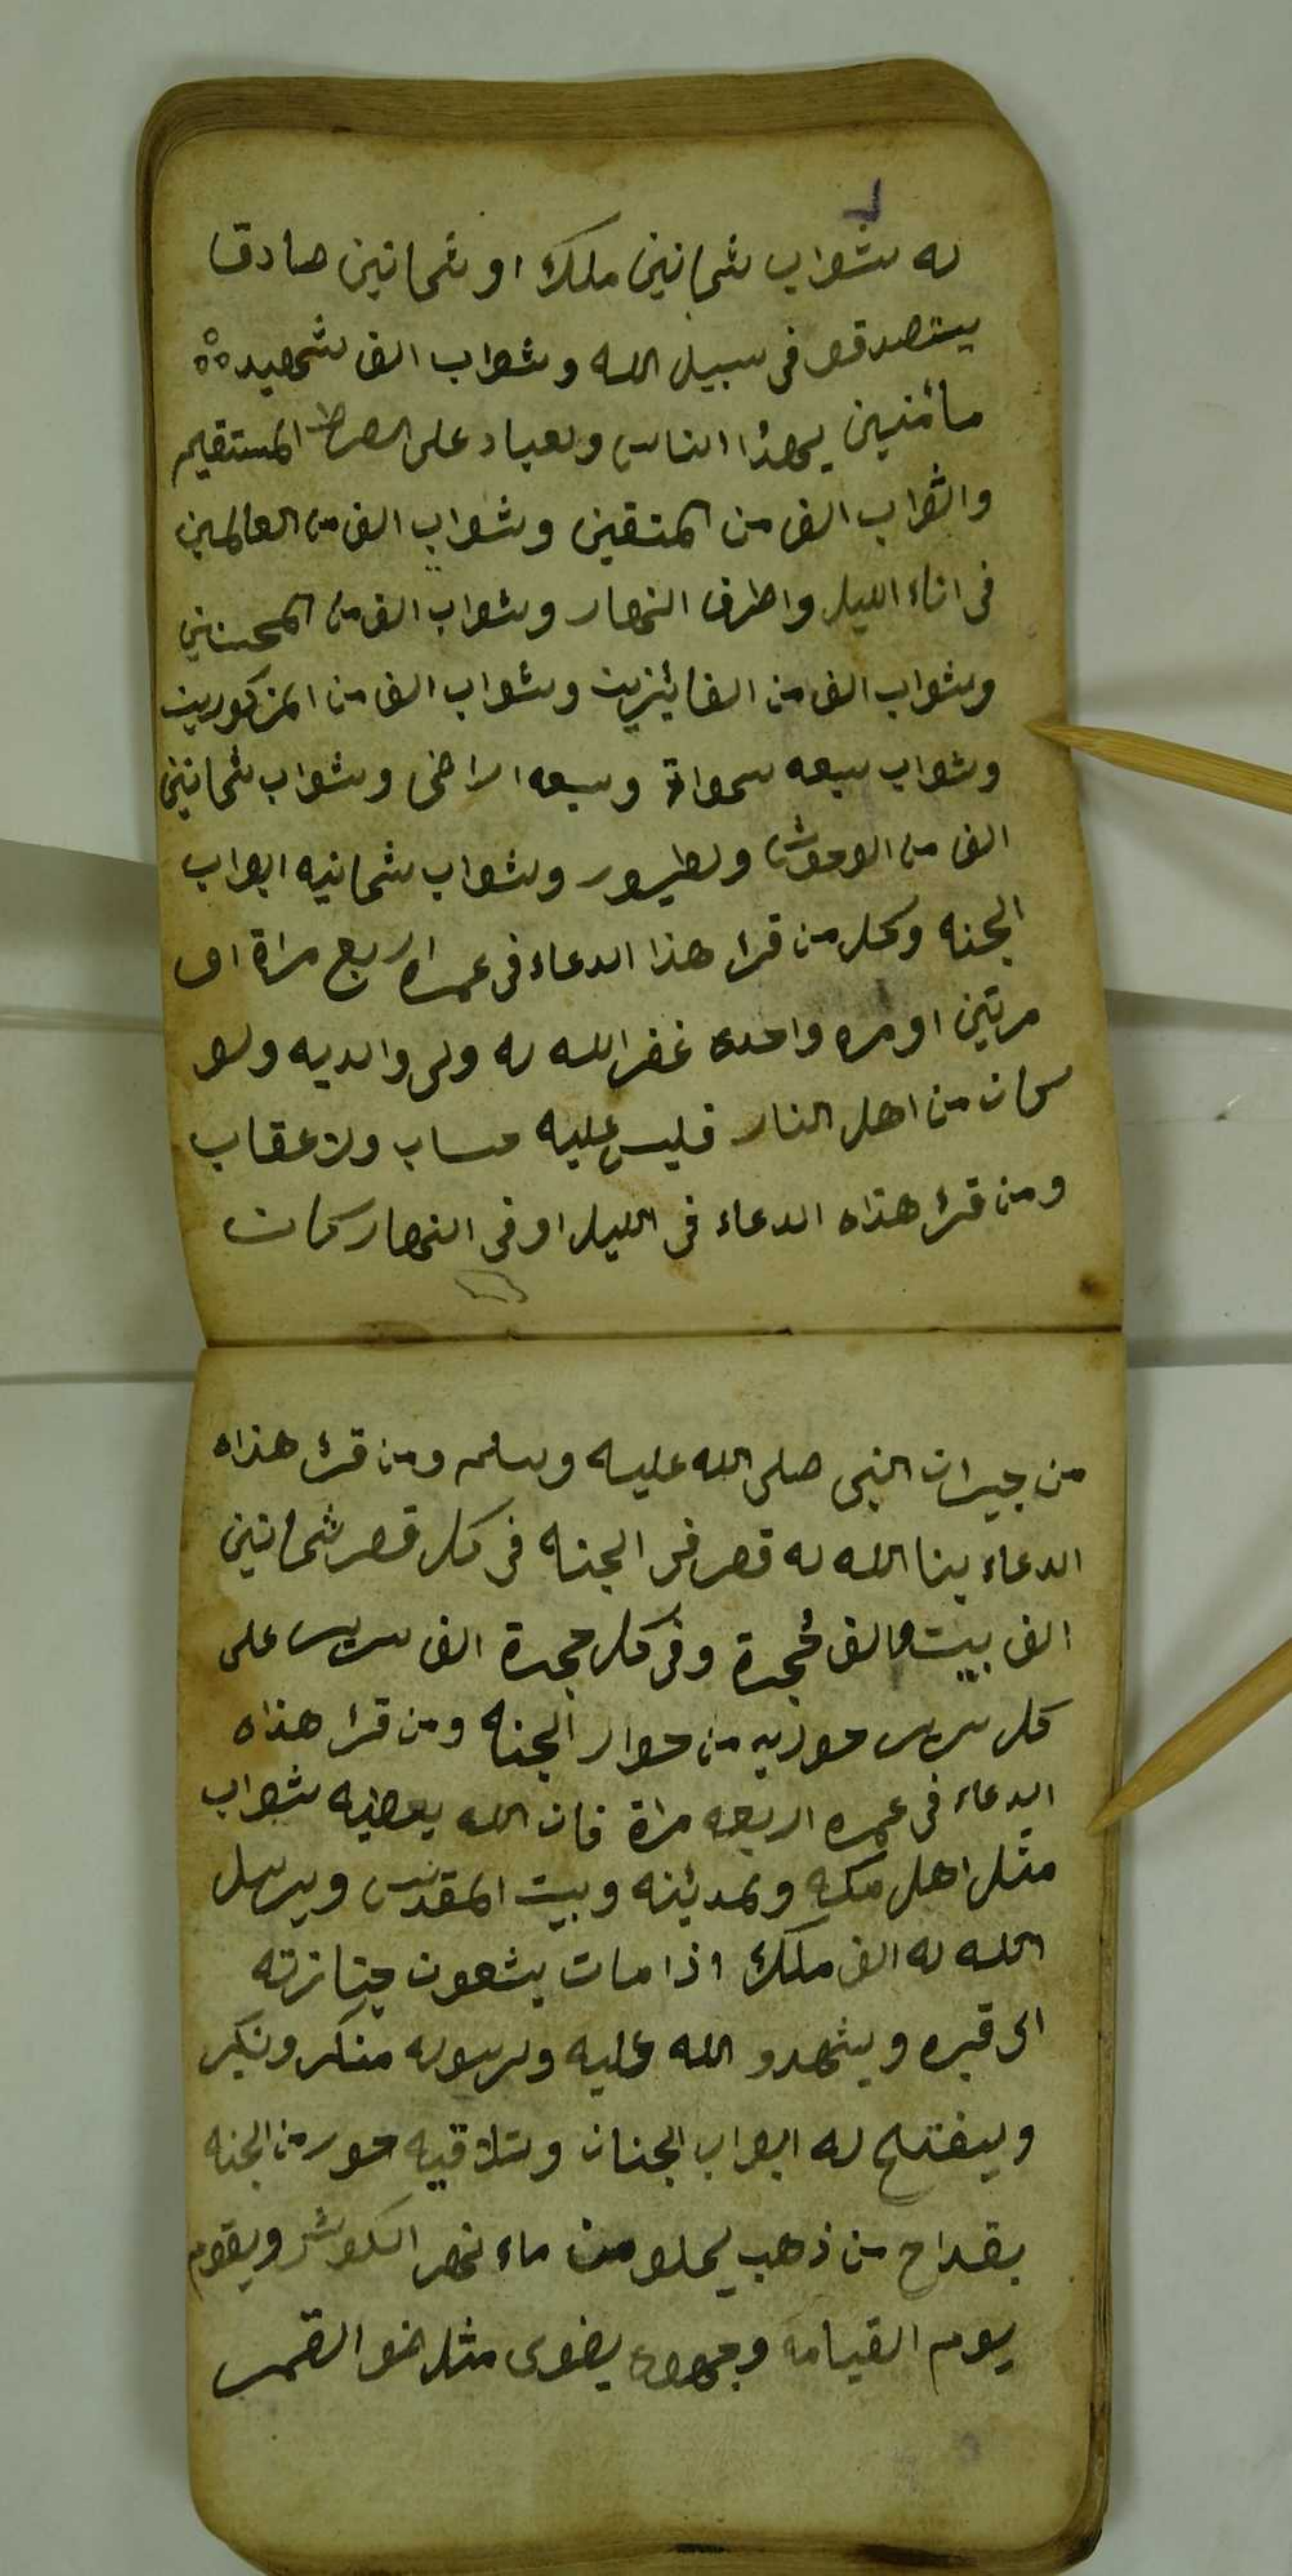 له ثواب ثمانين ملك او ثمانين صادقا
يتصدقو فى سبيل الله وثواب الف شهيد
مائنين يهذا الناس ولعباد على الصرط المستقيم
والثواب الف من المتقين وثواب الف من العالمين
فى اناء الليل واطرف النهار وثواب الف من المحسنين
وثواب الف من الفائيزين وثواب الف من المزكورين
وثواب سبعه سمواة وسبعه اراضى وثواب ثمانين
الف من الوحوش ولطيور وثواب ثمانيه ابواب
الجنه وكل من قرا هذا الدعاء فى عمراه اربع مراة او
مرتين او مره واحده غفر الله له ولى والديه ولو
كان من اهل النار فليس عليه حساب ولا عقاب
ومن قرئ هذاه الدعاء فى الليل او فى النهار كان
من جيران النبى صلى الله عليه وسلم ومن قرئ هذاه
الدعاء بنا الله له قصر فى الجنه فى كل قصر ثمانين
الف بيت والف حُجرة وفى كل حجرة الف سرير على
كل سرير حوريه من حوار الجنه ومن قرا هذاه
الدعاء فى عمره اربعه مراة فان الله يعطيه ثواب
مثل اهل مكه ولمدينه وبيت المقدس ويرسل
الله له الف ملك اذا مات يشعون جنازته
الى قبره ويشهدو الله عليه ولرسوله منكر ونكير
وييفتح له ابواب الجنان وتلاقيه حور من الجنه
بقداح من ذهب يملو من ماء نهر الكوثر ويقوم
يوم القيامه وجهوه يضوى مثل ضو القمر